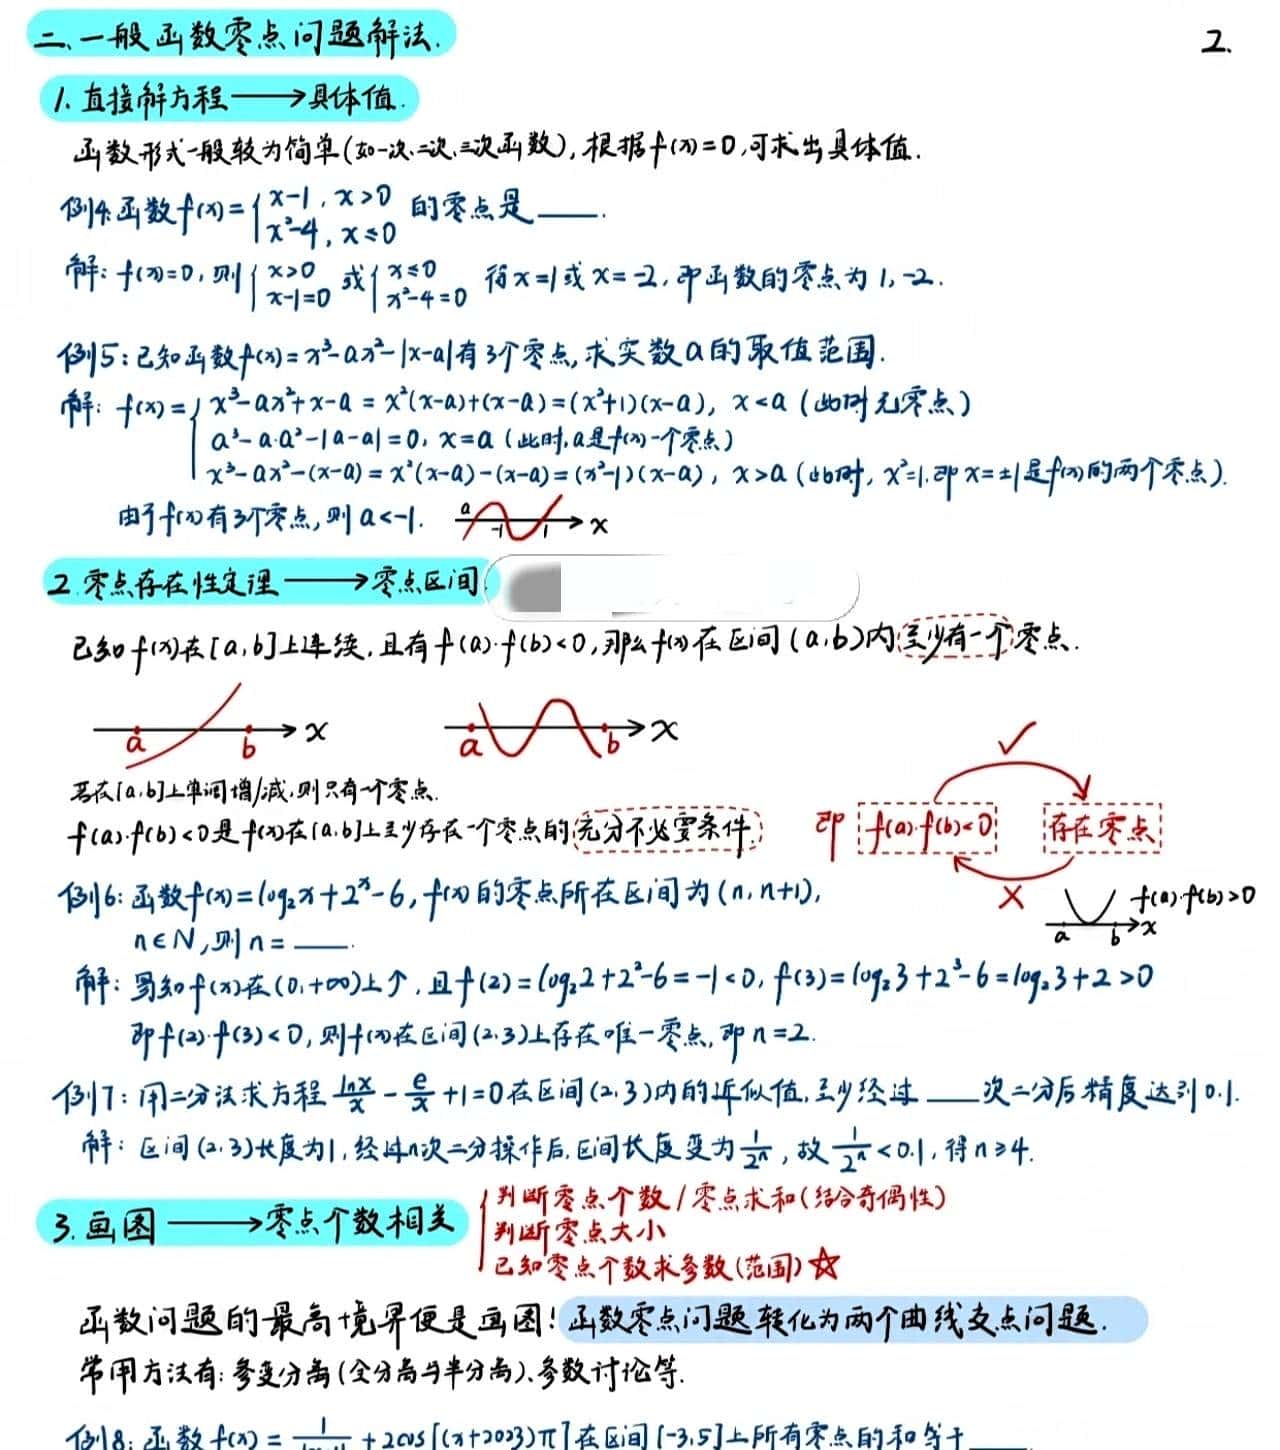 二、一般函数零点问题解法.
2.
1. 直接解方程——→具体值.
函数形式一般较为简单(如一次、二次、三次函数), 根据f(x)=0,可求出具体值.
例4:函数f(x)={x-1, x>0 的零点是____.
x²-4, x≤0
解: f(x)=0, 则{x>0 或{x≤0 得x=1或x=-2, 即函数的零点为1,-2.
x-1=0 x²-4=0
例5:已知函数f(x)=x³-ax²-|x-a|有3个零点,求实数a的取值范围.
解: f(x)={x³-ax²+x-a=x²(x-a)+(x-a)=(x²+1)(x-a), x<a (此时无零点)
a³-a·a²-|a-a|=0, x=a (此时,a是f(x)一个零点)
x³-ax²-(x-a)=x²(x-a)-(x-a)=(x²-1)(x-a), x>a (此时, x²=1,即x=±1是f(x)的两个零点).
由于f(x)有3个零点, 则a<-1.
a -1 1 x
2. 零点存在性定理——→零点区间.
已知f(x)在[a,b]上连续,且有f(a)·f(b)<0,那么f(x)在区间(a,b)内至少有一个零点.
a b x
a b x
✓
若在[a,b]上单调增/减,则只有一个零点.
f(a)·f(b)<0是f(x)在[a,b]上至少存在一个零点的充分不必要条件.
即 f(a)·f(b)<0 存在零点
×
f(a)·f(b)>0
a b x
例6:函数f(x)=log₂x+2ˣ-6, f(x)的零点所在区间为(n,n+1),
n∈N,则n=____.
解:易知f(x)在(0,+∞)上↑,且f(2)=log₂2+2²-6=-1<0, f(3)=log₂3+2³-6=log₂3+2>0
即f(2)·f(3)<0, 则f(x)在区间(2,3)上存在唯一零点, 即n=2.
例7:用二分法求方程lnx/x-e/x+1=0在区间(2,3)内的近似值,至少经过____次二分后精度达到0.1.
解:区间(2,3)长度为1,经过n次二分操作后,区间长度变为1/2ⁿ,故1/2ⁿ<0.1,得n≥4.
3. 画图——→零点个数相关
判断零点个数/零点求和(结合奇偶性)
判断零点大小
已知零点个数求参数(范围)☆
函数问题的最高境界便是画图! 函数零点问题转化为两个曲线交点问题.
常用方法有:参变分离(全分离与半分离)、参数讨论等.
例8:函数f(x)= +2cos[(x+2023)π]在区间[-3,5]上所有零点的和等于____